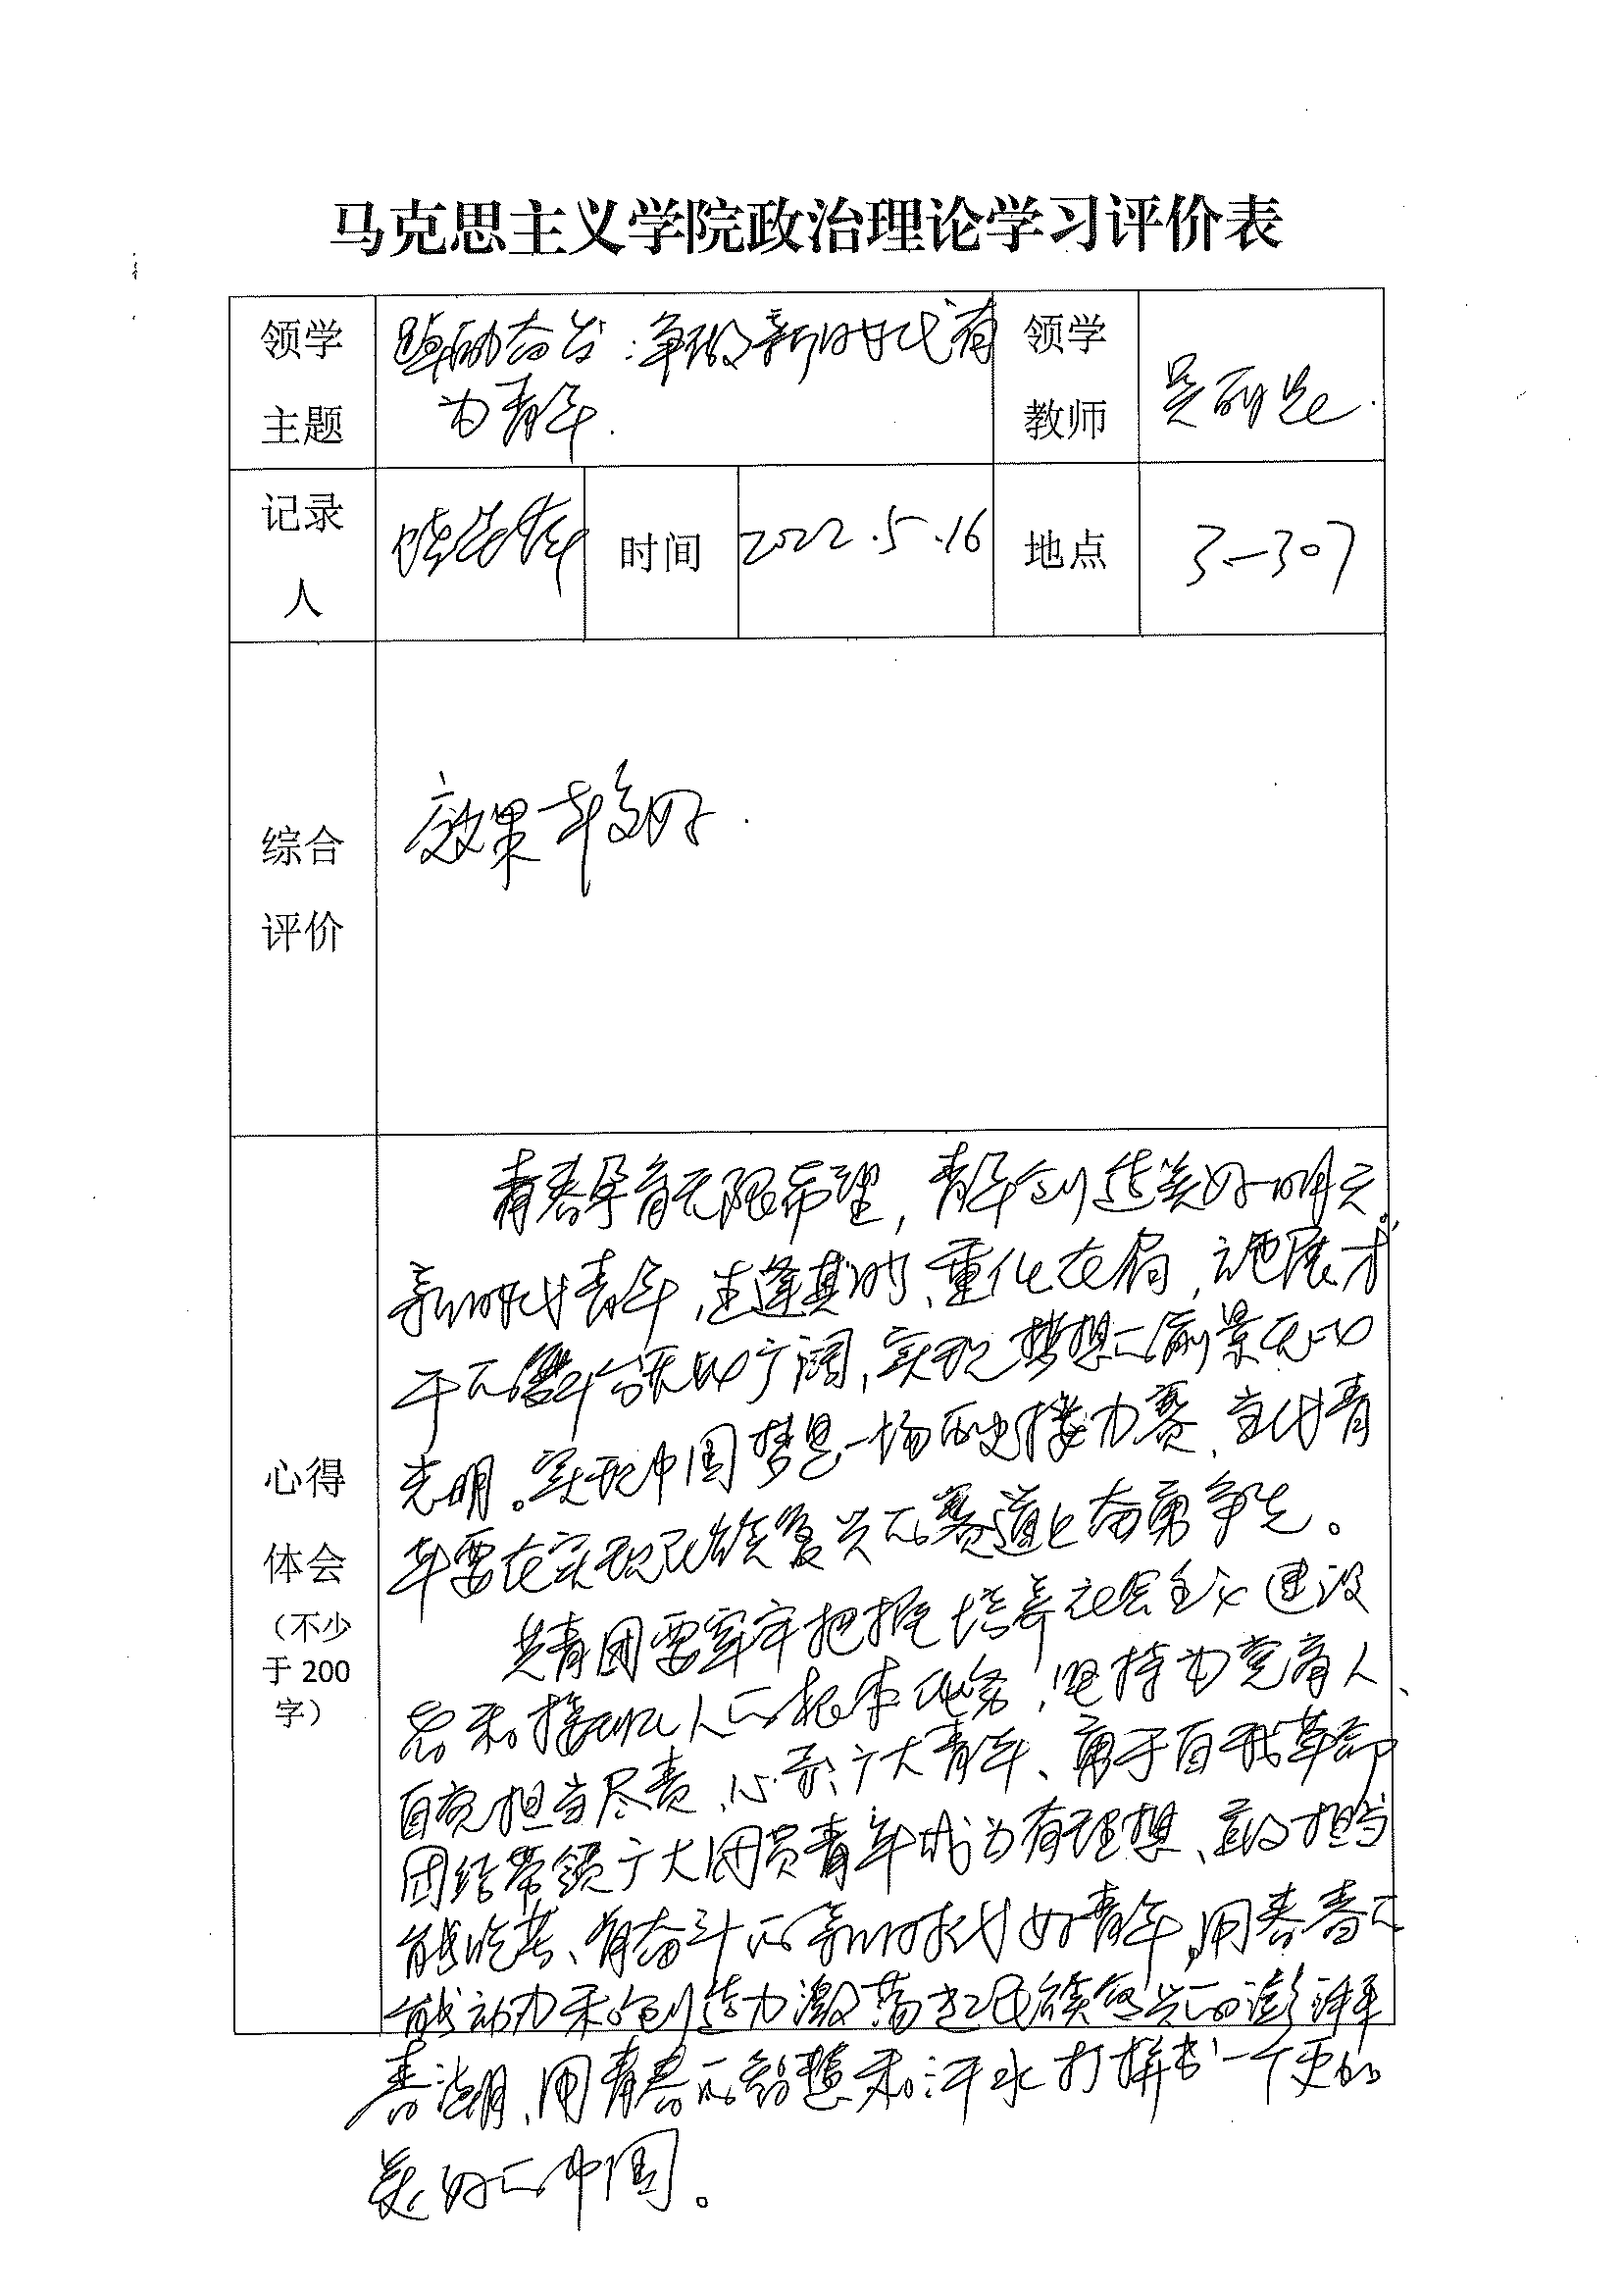 马克思主义学院政治理论学习评价表
领学主题
踔厉奋发：争做新时代有
为青年.
领学教师
吴
记录人
时间
2022.5.16
地点
3-307
综合评价
效果较好.
心得体会
（不少于200字）
青春孕育无限希望，青年创造美好明天.
新时代青年，生逢其时、重任在肩，施展才
干的舞台无比广阔，实现梦想的前景无比
光明。实现中国梦是一场历史接力赛，当代青
年要在实现民族复兴的赛道上奋勇争先。
共青团要牢牢把握培养社会主义建设
者和接班人的根本任务，坚持为党育人、
自觉担当尽责、心系广大青年、勇于自我革命
团结带领广大团员青年成为有理想、敢担当
能吃苦、肯奋斗的新时代好青年，用青春的
能动力和创造力激荡起民族复兴的澎湃
春潮，用青春的智慧和汗水打拼出一个更加
美好的中国。